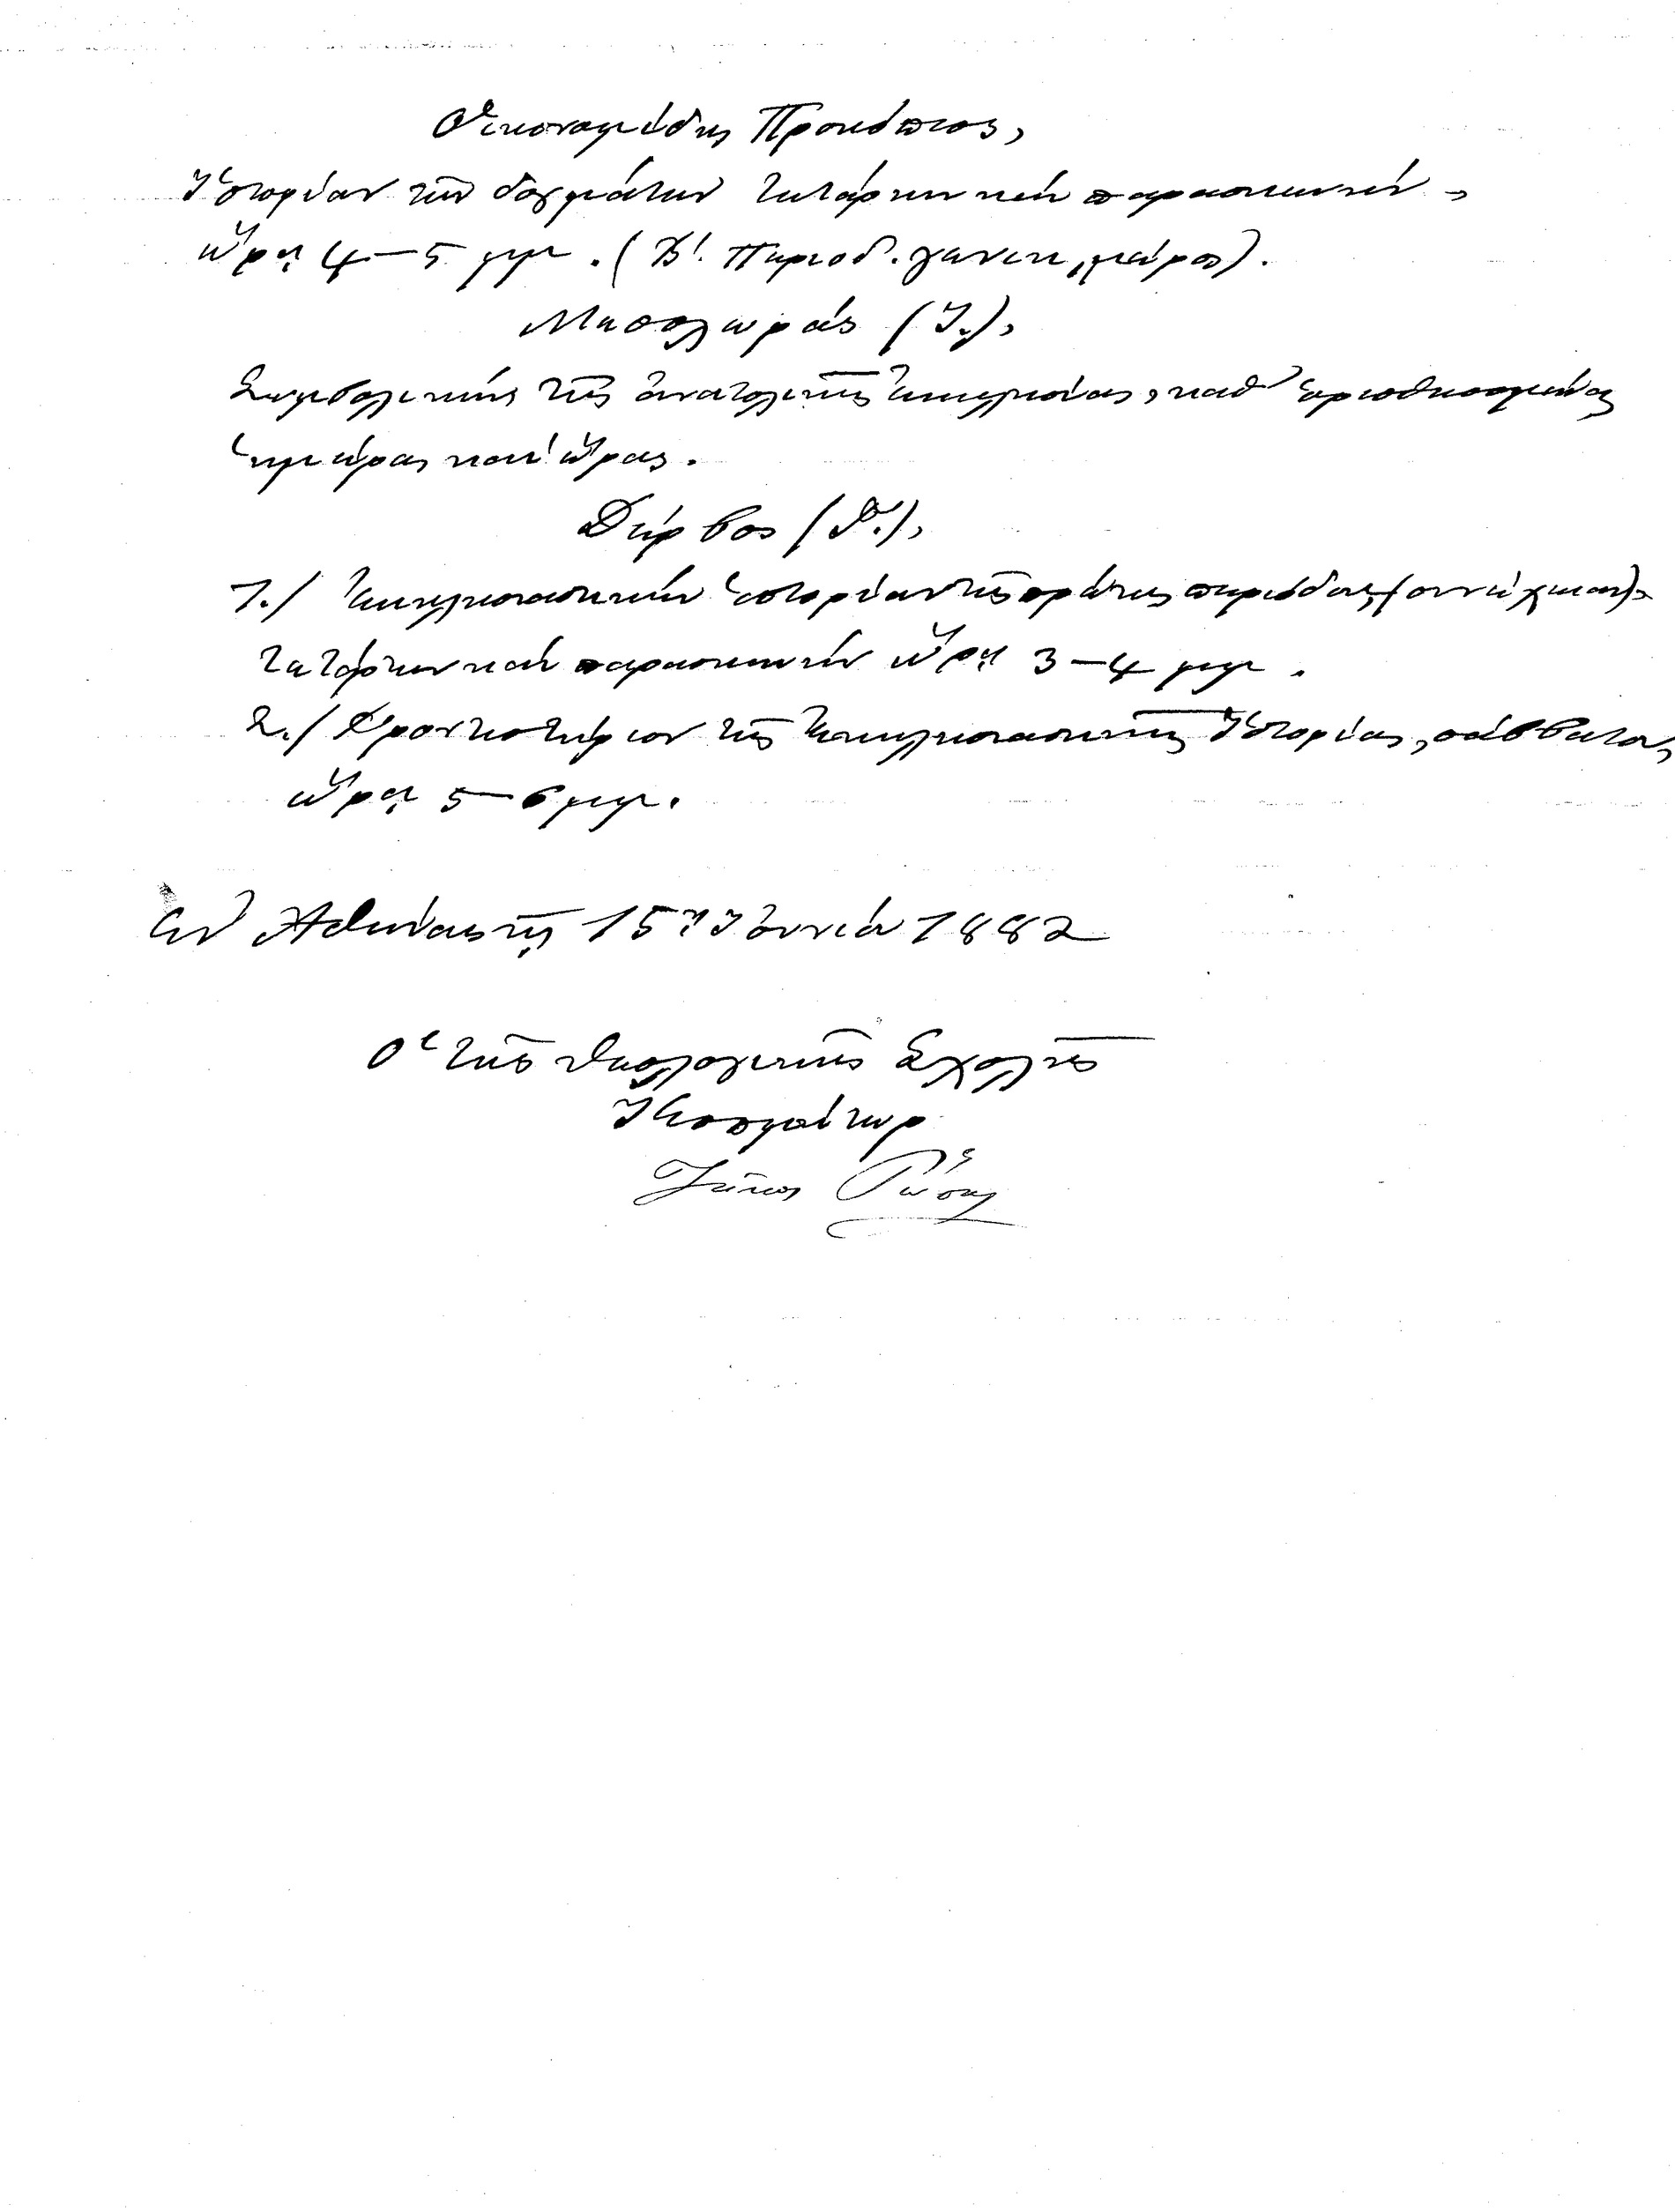 Οἰκονομίδης Προκόπιος,
Ἱστορίαν τῶν δογμάτων τετάρτην καὶ παρασκευήν,
ὥρᾳ 4-5 μμ. (Β'. Περιοδ. γενικ. μέρος).
Μεσολωρᾶς (Ι.),
Συμβολικὴν τῆς ἀνατολικῆς ἐκκλησίας, καθ' ὁρισθησομένας
ἡμέρας καὶ ὥρας.
Δέρβος (Γ.),
1./ Ἐκκλησιαστικὴν ἱστορίαν τῆς πρώτης περιόδου, (συνέχειαν),
τετάρτην καὶ παρασκευήν ὥρᾳ 3-4 μμ.
2./ Φροντιστήριον τῆς Ἐκκλησιαστικῆς Ἱστορίας, σάββατον,
ὥρᾳ 5-6 μμ.
Ἐν Ἀθήναις τῇ 15ῃ Ἰουνίου 1882
Ὁ τῆς Θεολογικῆς Σχολῆς
Κοσμήτωρ
Ζῆκος Ῥώσης